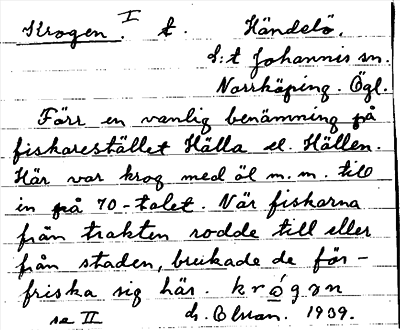 Krogen. I t. Händelö,
S:t Johannis sn.
Norrköping. Ögl.
Förr en vanlig benämning på
fiskarestället Hälla el. Hällen.
Här var krog med öl m.m. till
in på 70-talet. När fiskarna
från trakten rodde till eller
från staden, brukade de för-
friska sig här. krógən
se II h. Olsson. 1909.